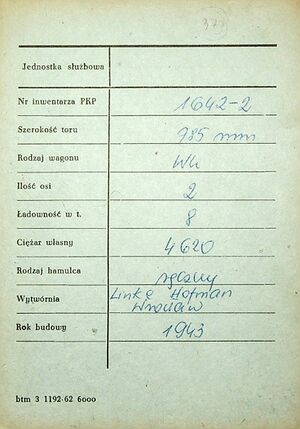 Jednostka służbowa
Nr inwentarza PKP 1642-2
Szerokość toru 785 mm
Rodzaj wagonu Wh
Ilość osi 2
Ładowność w t. 8
Ciężar własny 4620
Rodzaj hamulca ręczny
Wytwórnia Linke Hofman
Wrocław
Rok budowy 1943
btm 3 1192-62 6000